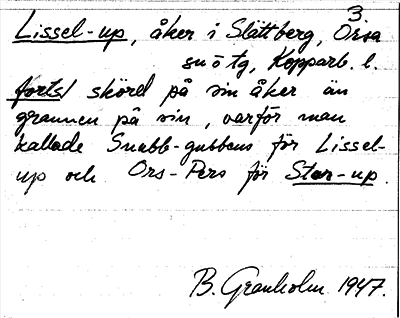 3.
Lissel-up, åker i Slättberg, Orsa
sn ö tg, Kopparb. l.
forts/ skörd på sin åker än
grannen på sin, varför man
kallade Snabb-gubbens för Lissel-
up och Ors-Pers för Stor-up.
B. Granholm 1947.